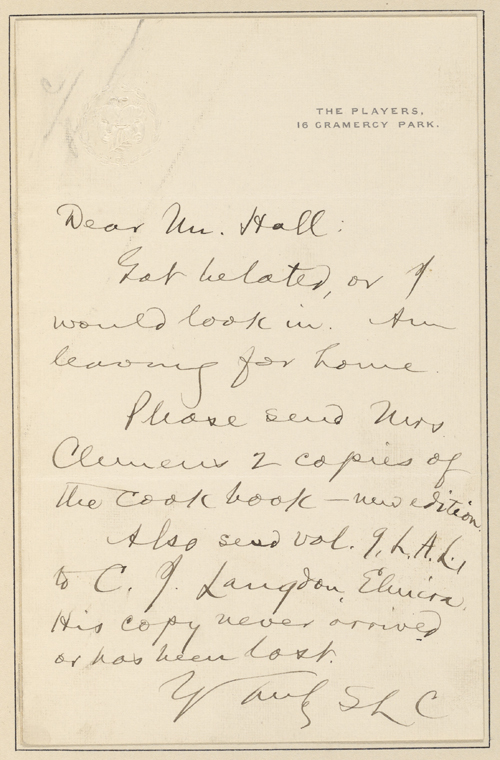 THE PLAYERS,
16 GRAMERCY PARK.
Dear Mr. Hall:
Got belated, or I
would look in. Am
leaving for home.
Please send Mrs
Clemens 2 copies of
the cook book — new edition.
Also send vol. 9, L.A.L.,
to C. J. Langdon, Elmira.
His copy never arrived
or has been lost.
Y Truly SLC